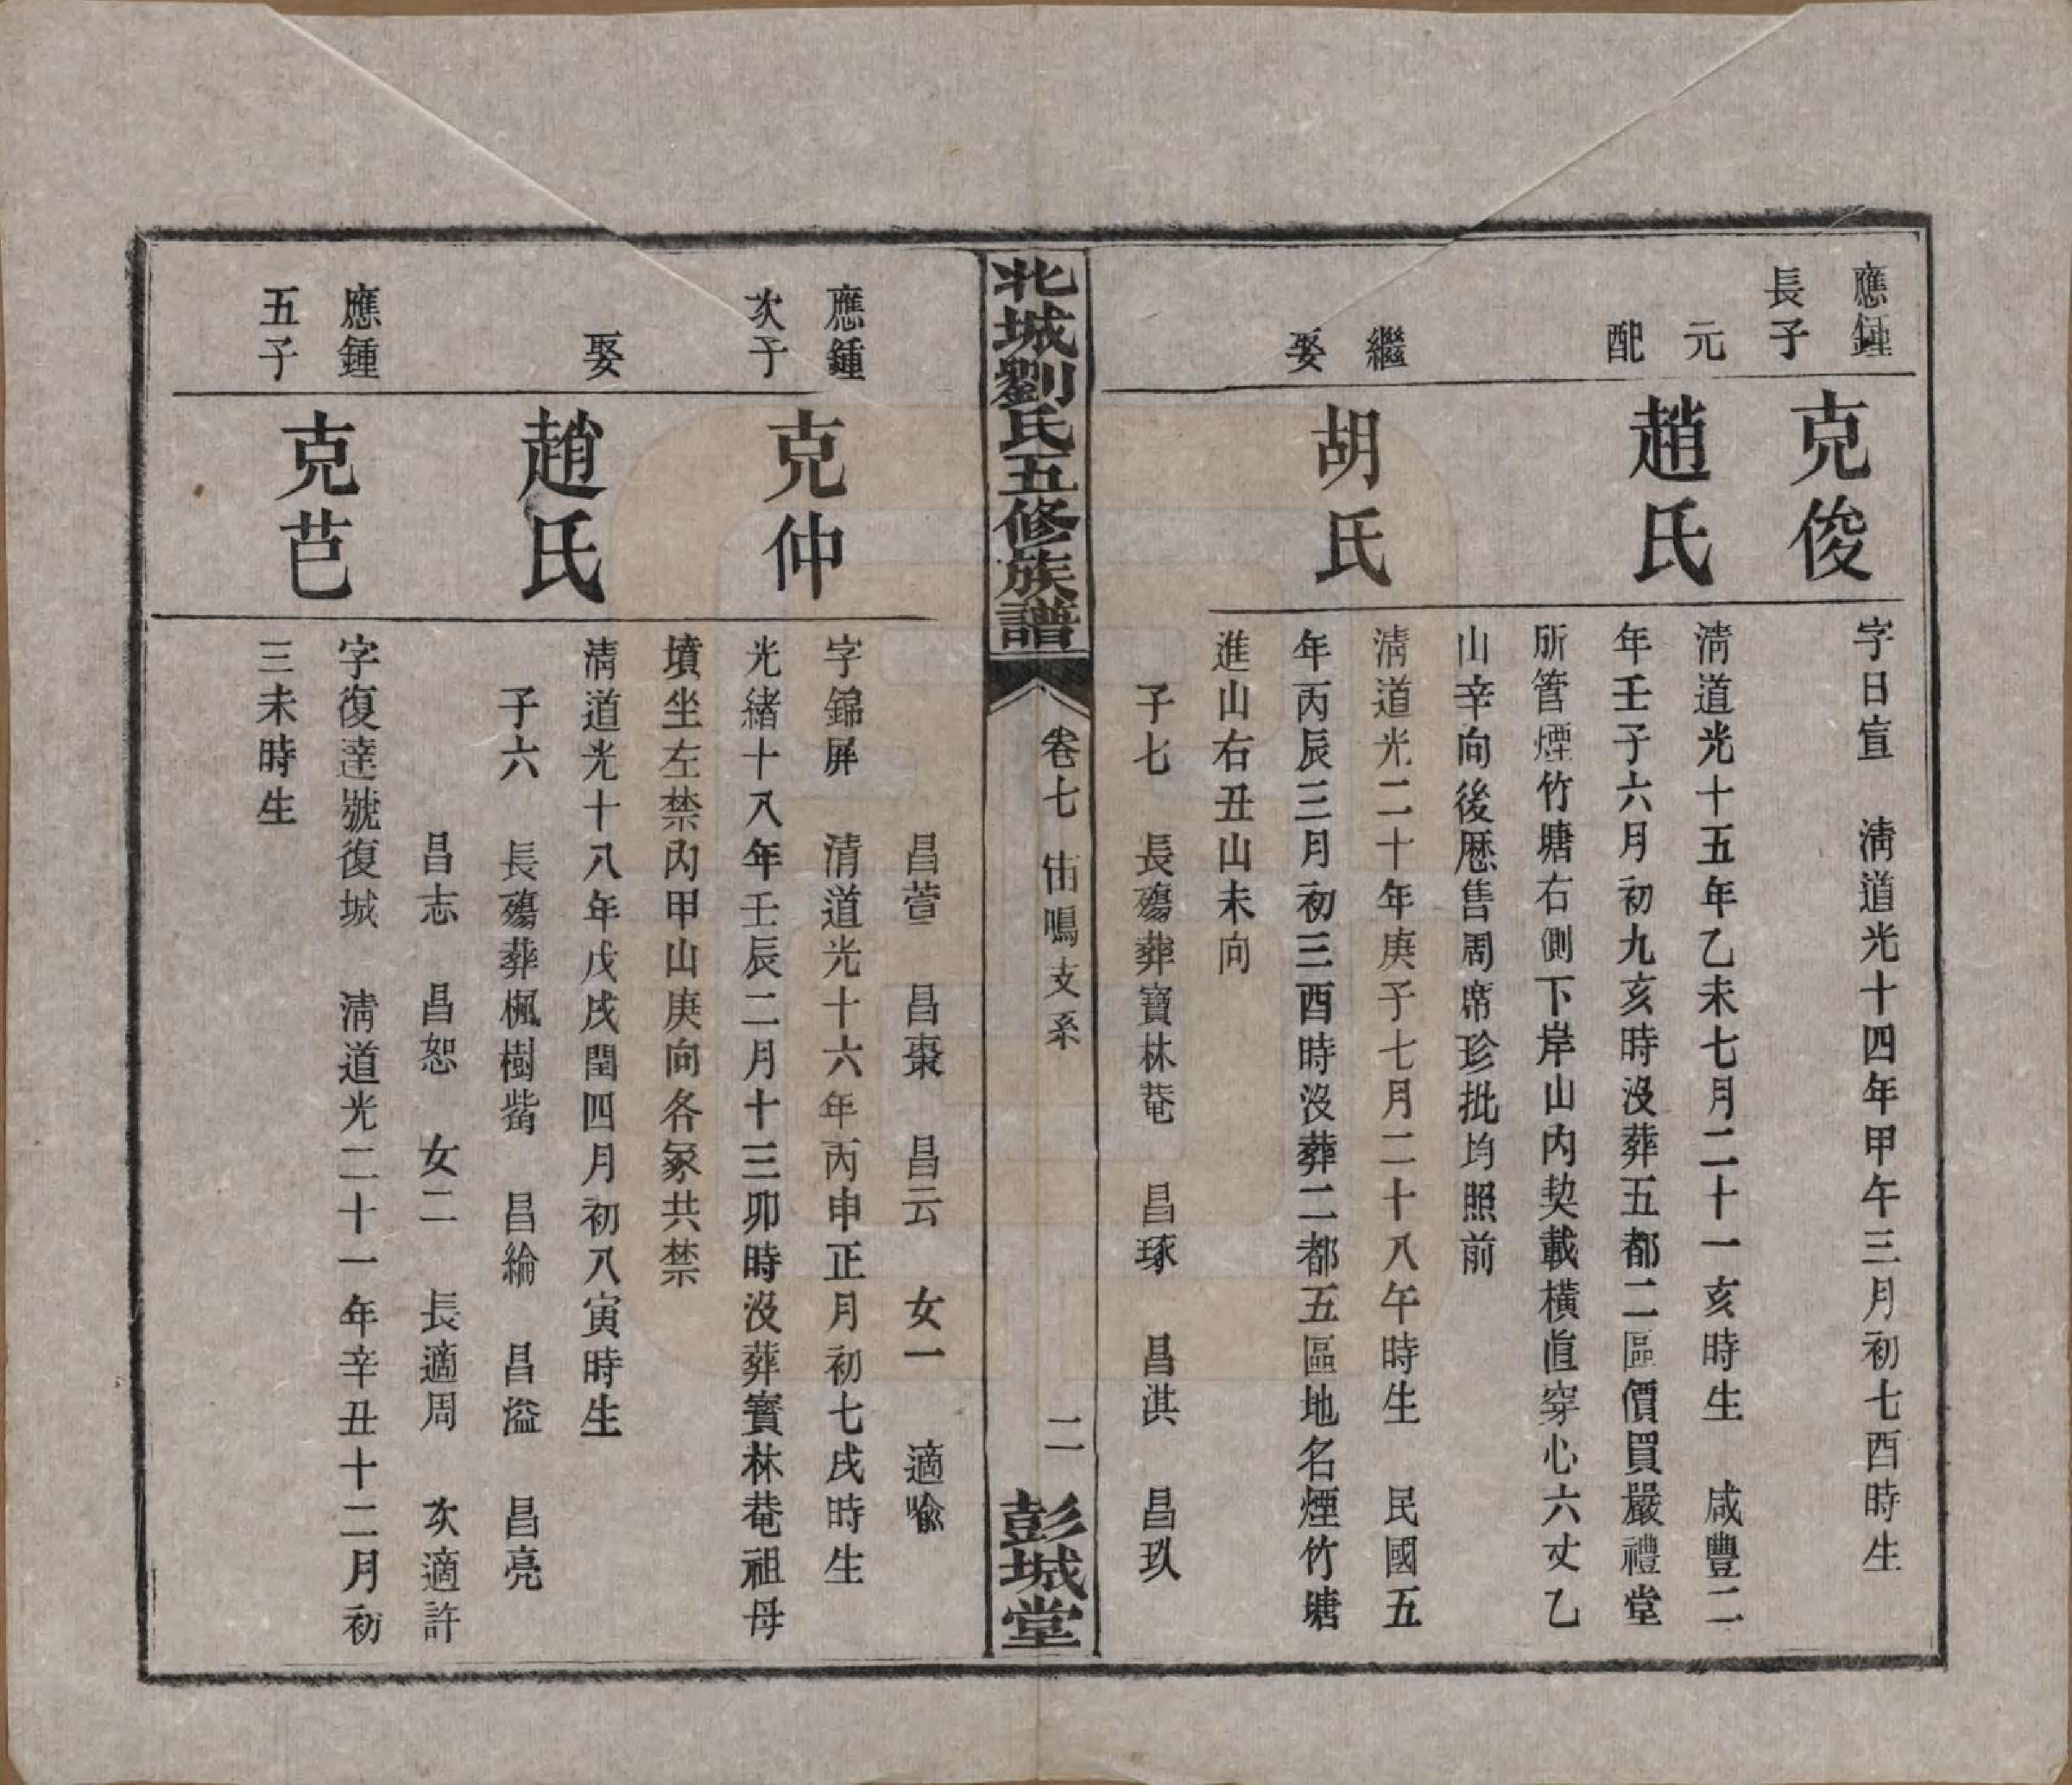 應鍾
長子
克俊
字日宣　清道光十四年甲午三月初七酉時生
元
配
趙氏
清道光十五年乙未七月二十一亥時生　咸豐二
年壬子六月初九亥時沒葬五都二區價買嚴禮堂
所管煙竹塘右側下岸山內契載橫直穿心六丈乙
山辛向後歷售周席珍批均照前
繼
娶
胡氏
清道光二十年庚子七月二十八午時生　民國五
年丙辰三月初三酉時沒葬二都五區地名煙竹塘
進山右丑山未向
子七　長殤葬寶林菴　昌琢　昌淇　昌玖
北城劉氏五修族譜
卷七　伷鳴支系
二
彭城堂
昌萱　昌棗　昌云　女一　適喩
應鍾
次子
克仲
字錦屏　清道光十六年丙申正月初七戌時生
光緒十八年壬辰二月十三卯時沒葬寶林菴祖母
墳坐左禁內甲山庚向各冢共禁
娶
趙氏
清道光十八年戊戌閏四月初八寅時生
子六　長殤葬楓樹嘴　昌綸　昌溢　昌亮
昌志　昌恕　女二　長適周　次適許
應鍾
五子
克芑
字復達號復城　清道光二十一年辛丑十二月初
三未時生